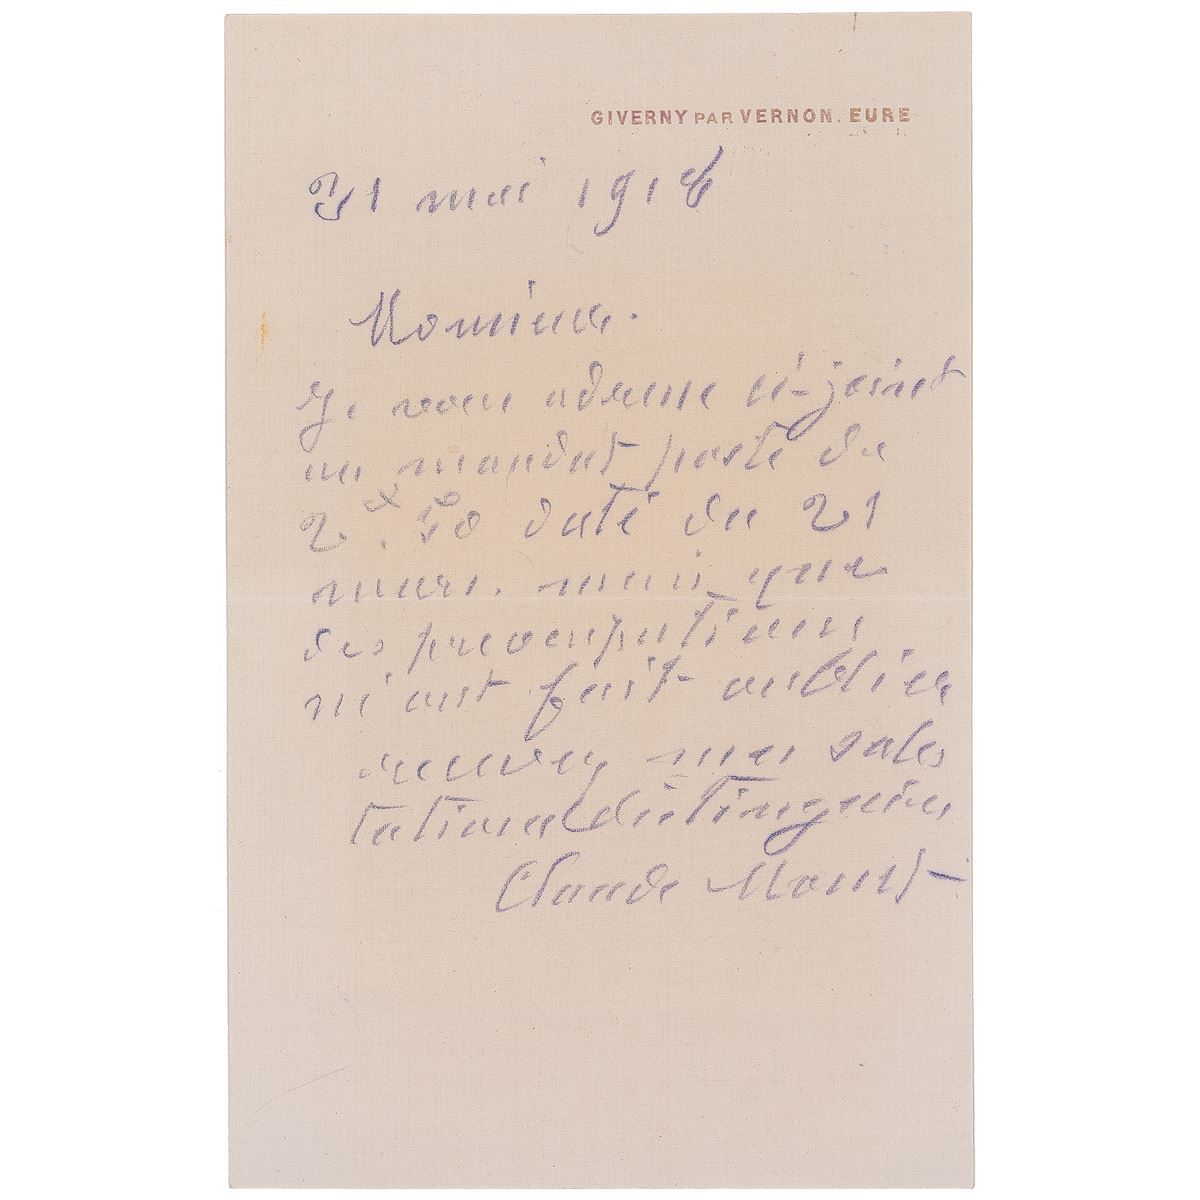 GIVERNY PAR VERNON. EURE
21 mai 1918
Monsieur.
Je vous adresse ci-joint
un mandat poste de
2. 50 daté du 21
mars. mais que
des préoccupations
m'ont fait oublier
recevez mes salu
tations distinguées
Claude Monet